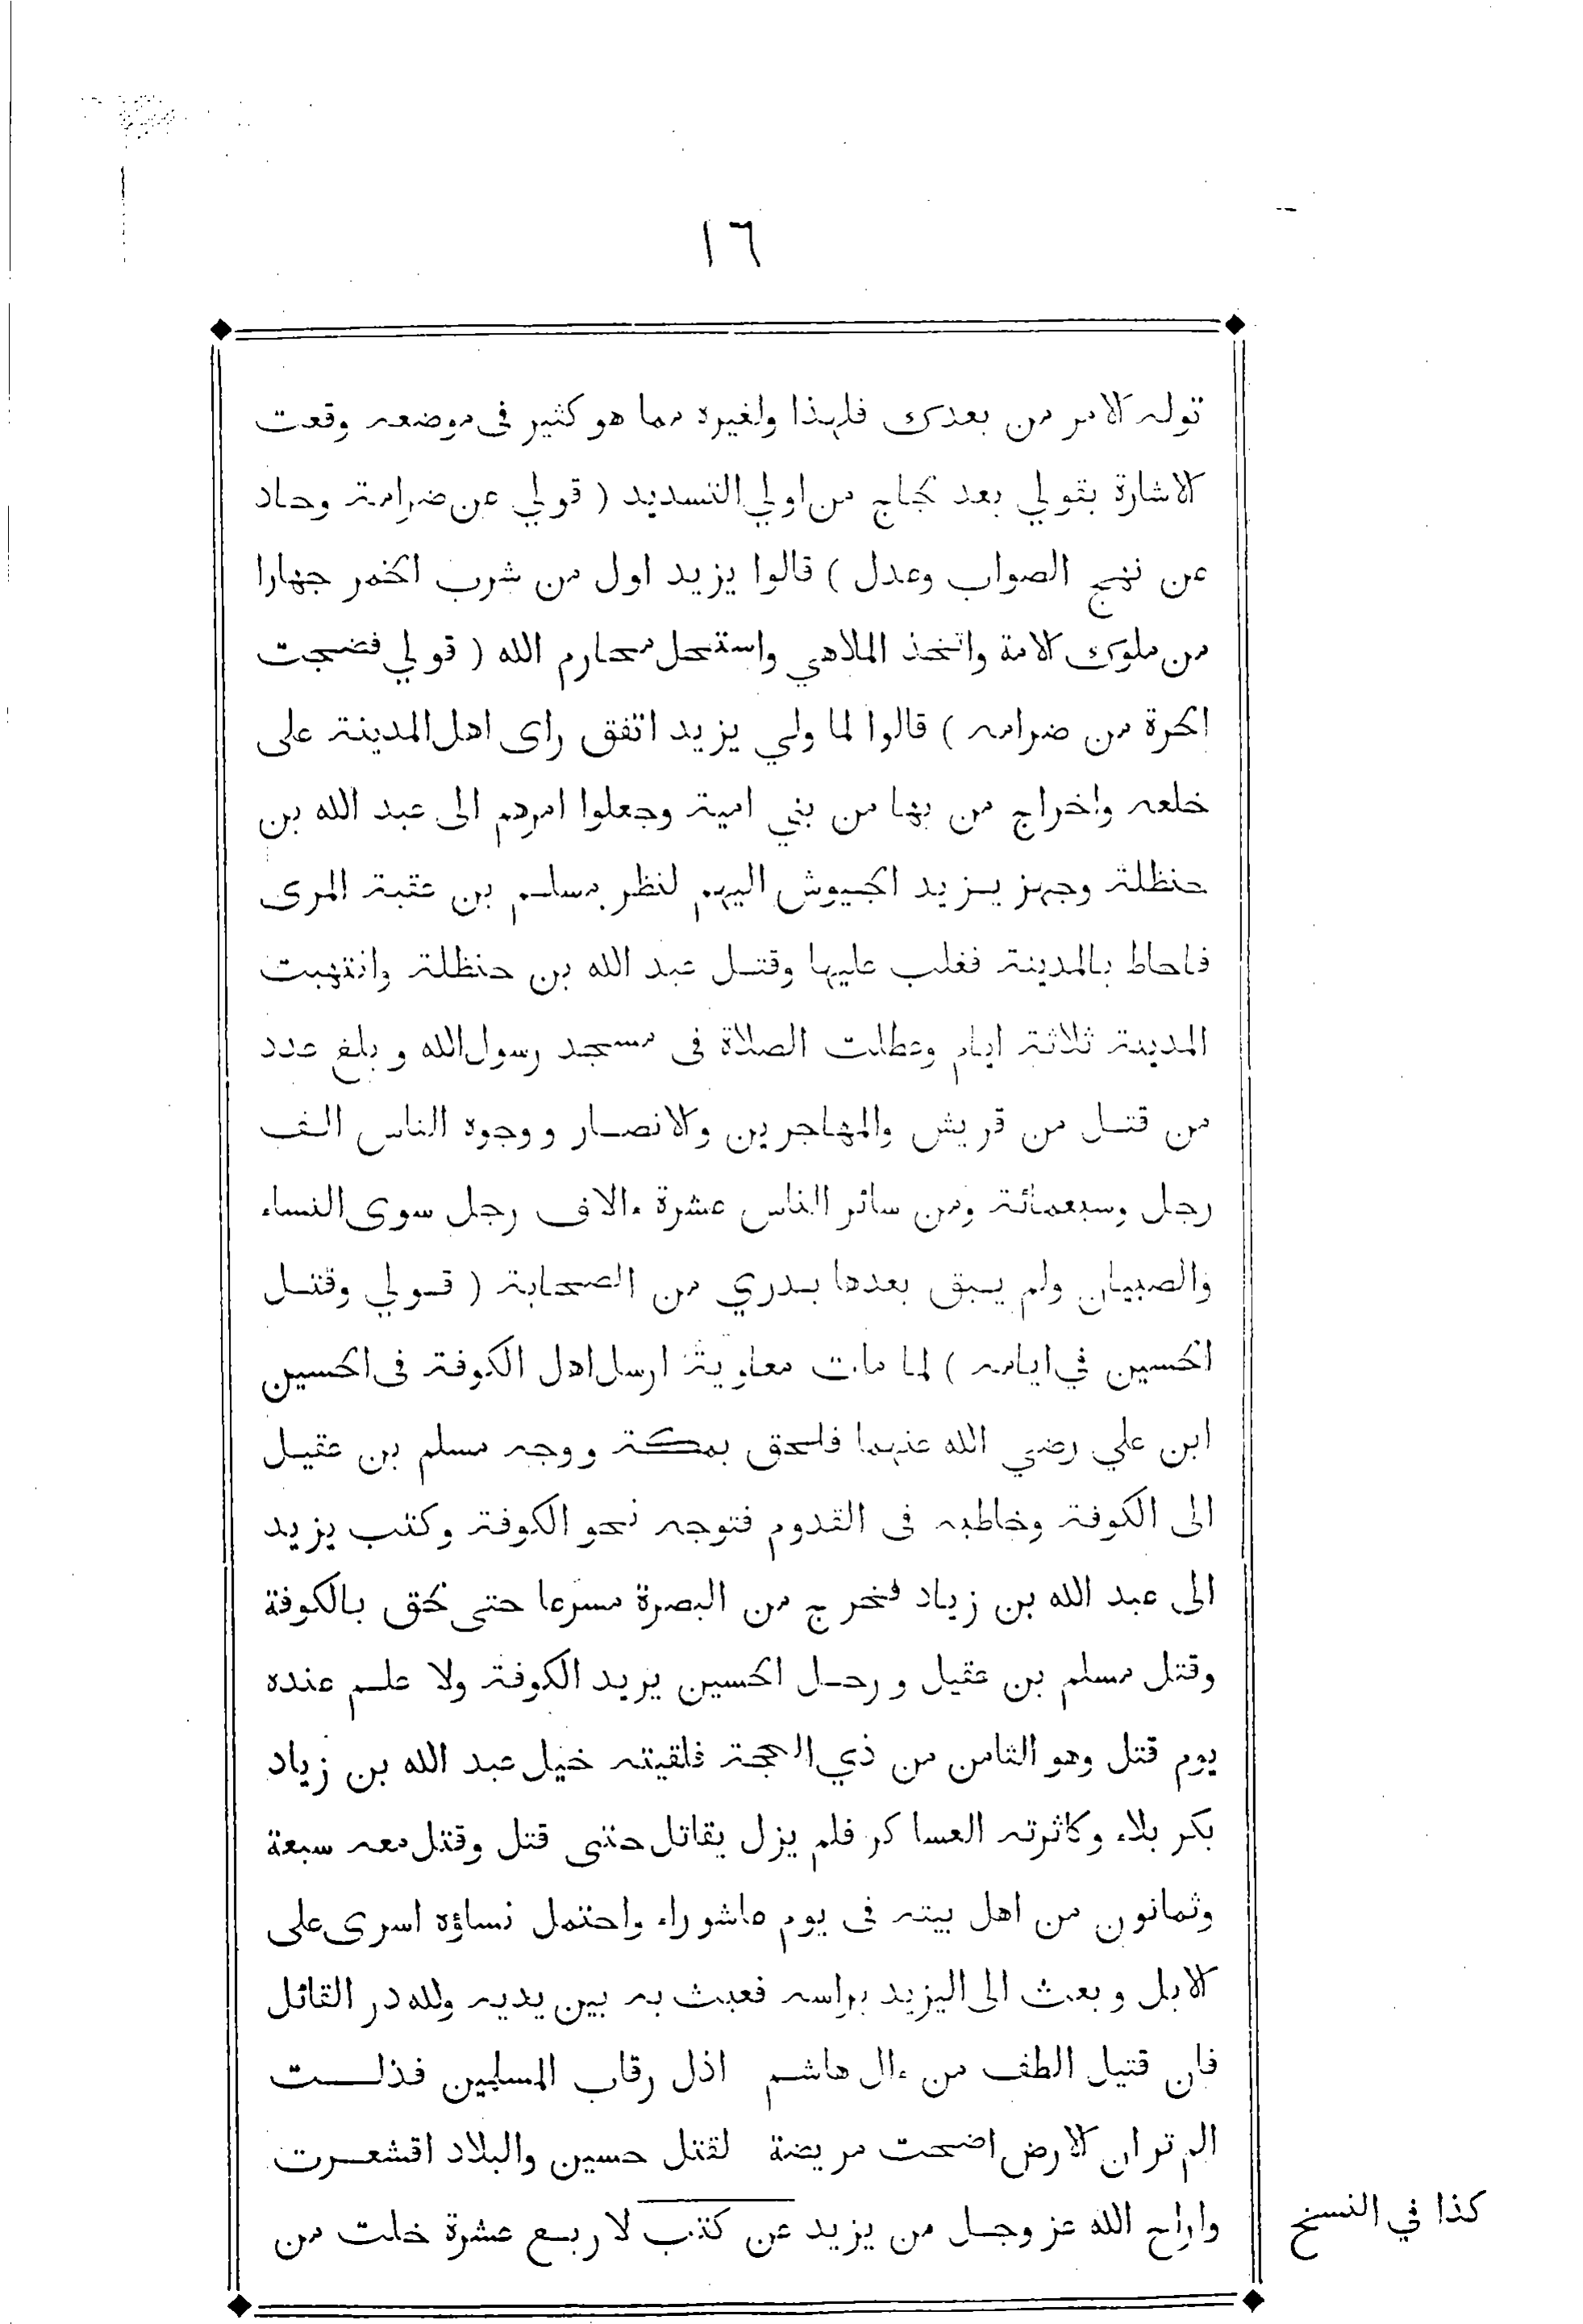 ١٦
توله الامر من بعدك فلهذا ولغيره مما هو كثير فى موضعه وقعت
الاشارة بقولي بعد لجاج من اولي التسديد ( قولي عن ضرامة وحاد
عن نهج الصواب وعدل ) قالوا يزيد اول من شرب الخمر جهارا
من ملوك الامة واتخذ الملاهي واستحل محارم الله ( قولي فضجت
الحرة من ضرامه ) قالوا لما ولي يزيد اتفق راى اهل المدينة على
خلعه واخراج من بها من بني امية وجعلوا امرهم الى عبد الله بن
حنظلة وجهز يزيد الجيوش اليهم لنظر مسلم بن عقبة المرى
فاحاط بالمدينة فغلب عليها وقتل عبد الله بن حنظلة وانتهبت
المدينة ثلاثة ايام وعطلت الصلاة فى مسجد رسول الله وبلغ عدد
من قتل من قريش والمهاجرين والانصار ووجوه الناس الف
رجل وسبعمائة ومن سائر الناس عشرة ءالاف رجل سوى النساء
والصبيان ولم يبق بعدها بدري من الصحابة ( قولي وقتل
الحسين في ايامه ) لما مات معاوية ارسل اهل الكوفة فى الحسين
ابن علي رضي الله عنهما فلحق بمكة ووجه مسلم بن عقيل
الى الكوفة وخاطبه فى القدوم فتوجه نحو الكوفة وكتب يزيد
الى عبد الله بن زياد فخرج من البصرة مسرعا حتى لحق بالكوفة
وقتل مسلم بن عقيل ورحل الحسين يريد الكوفة ولا علم عنده
يوم قتل وهو الثامن من ذي الحجة فلقيته خيل عبد الله بن زياد
بكربلاء وكاثرته العساكر فلم يزل يقاتل حتى قتل وقتل معه سبعة
وثمانون من اهل بيته فى يوم عاشوراء واحتمل نساؤه اسرى على
الابل وبعث الى اليزيد براسه فعبث به بين يديه ولله در القائل
فان قتيل الطف من ءال هاشم اذل رقاب المسلمين فذلت
الم تر ان الارض اضحت مريضة لقتل حسين والبلاد اقشعرت
واراح الله عز وجل من يزيد عن كتب لاربع عشرة خلت من
كذا في النسخ